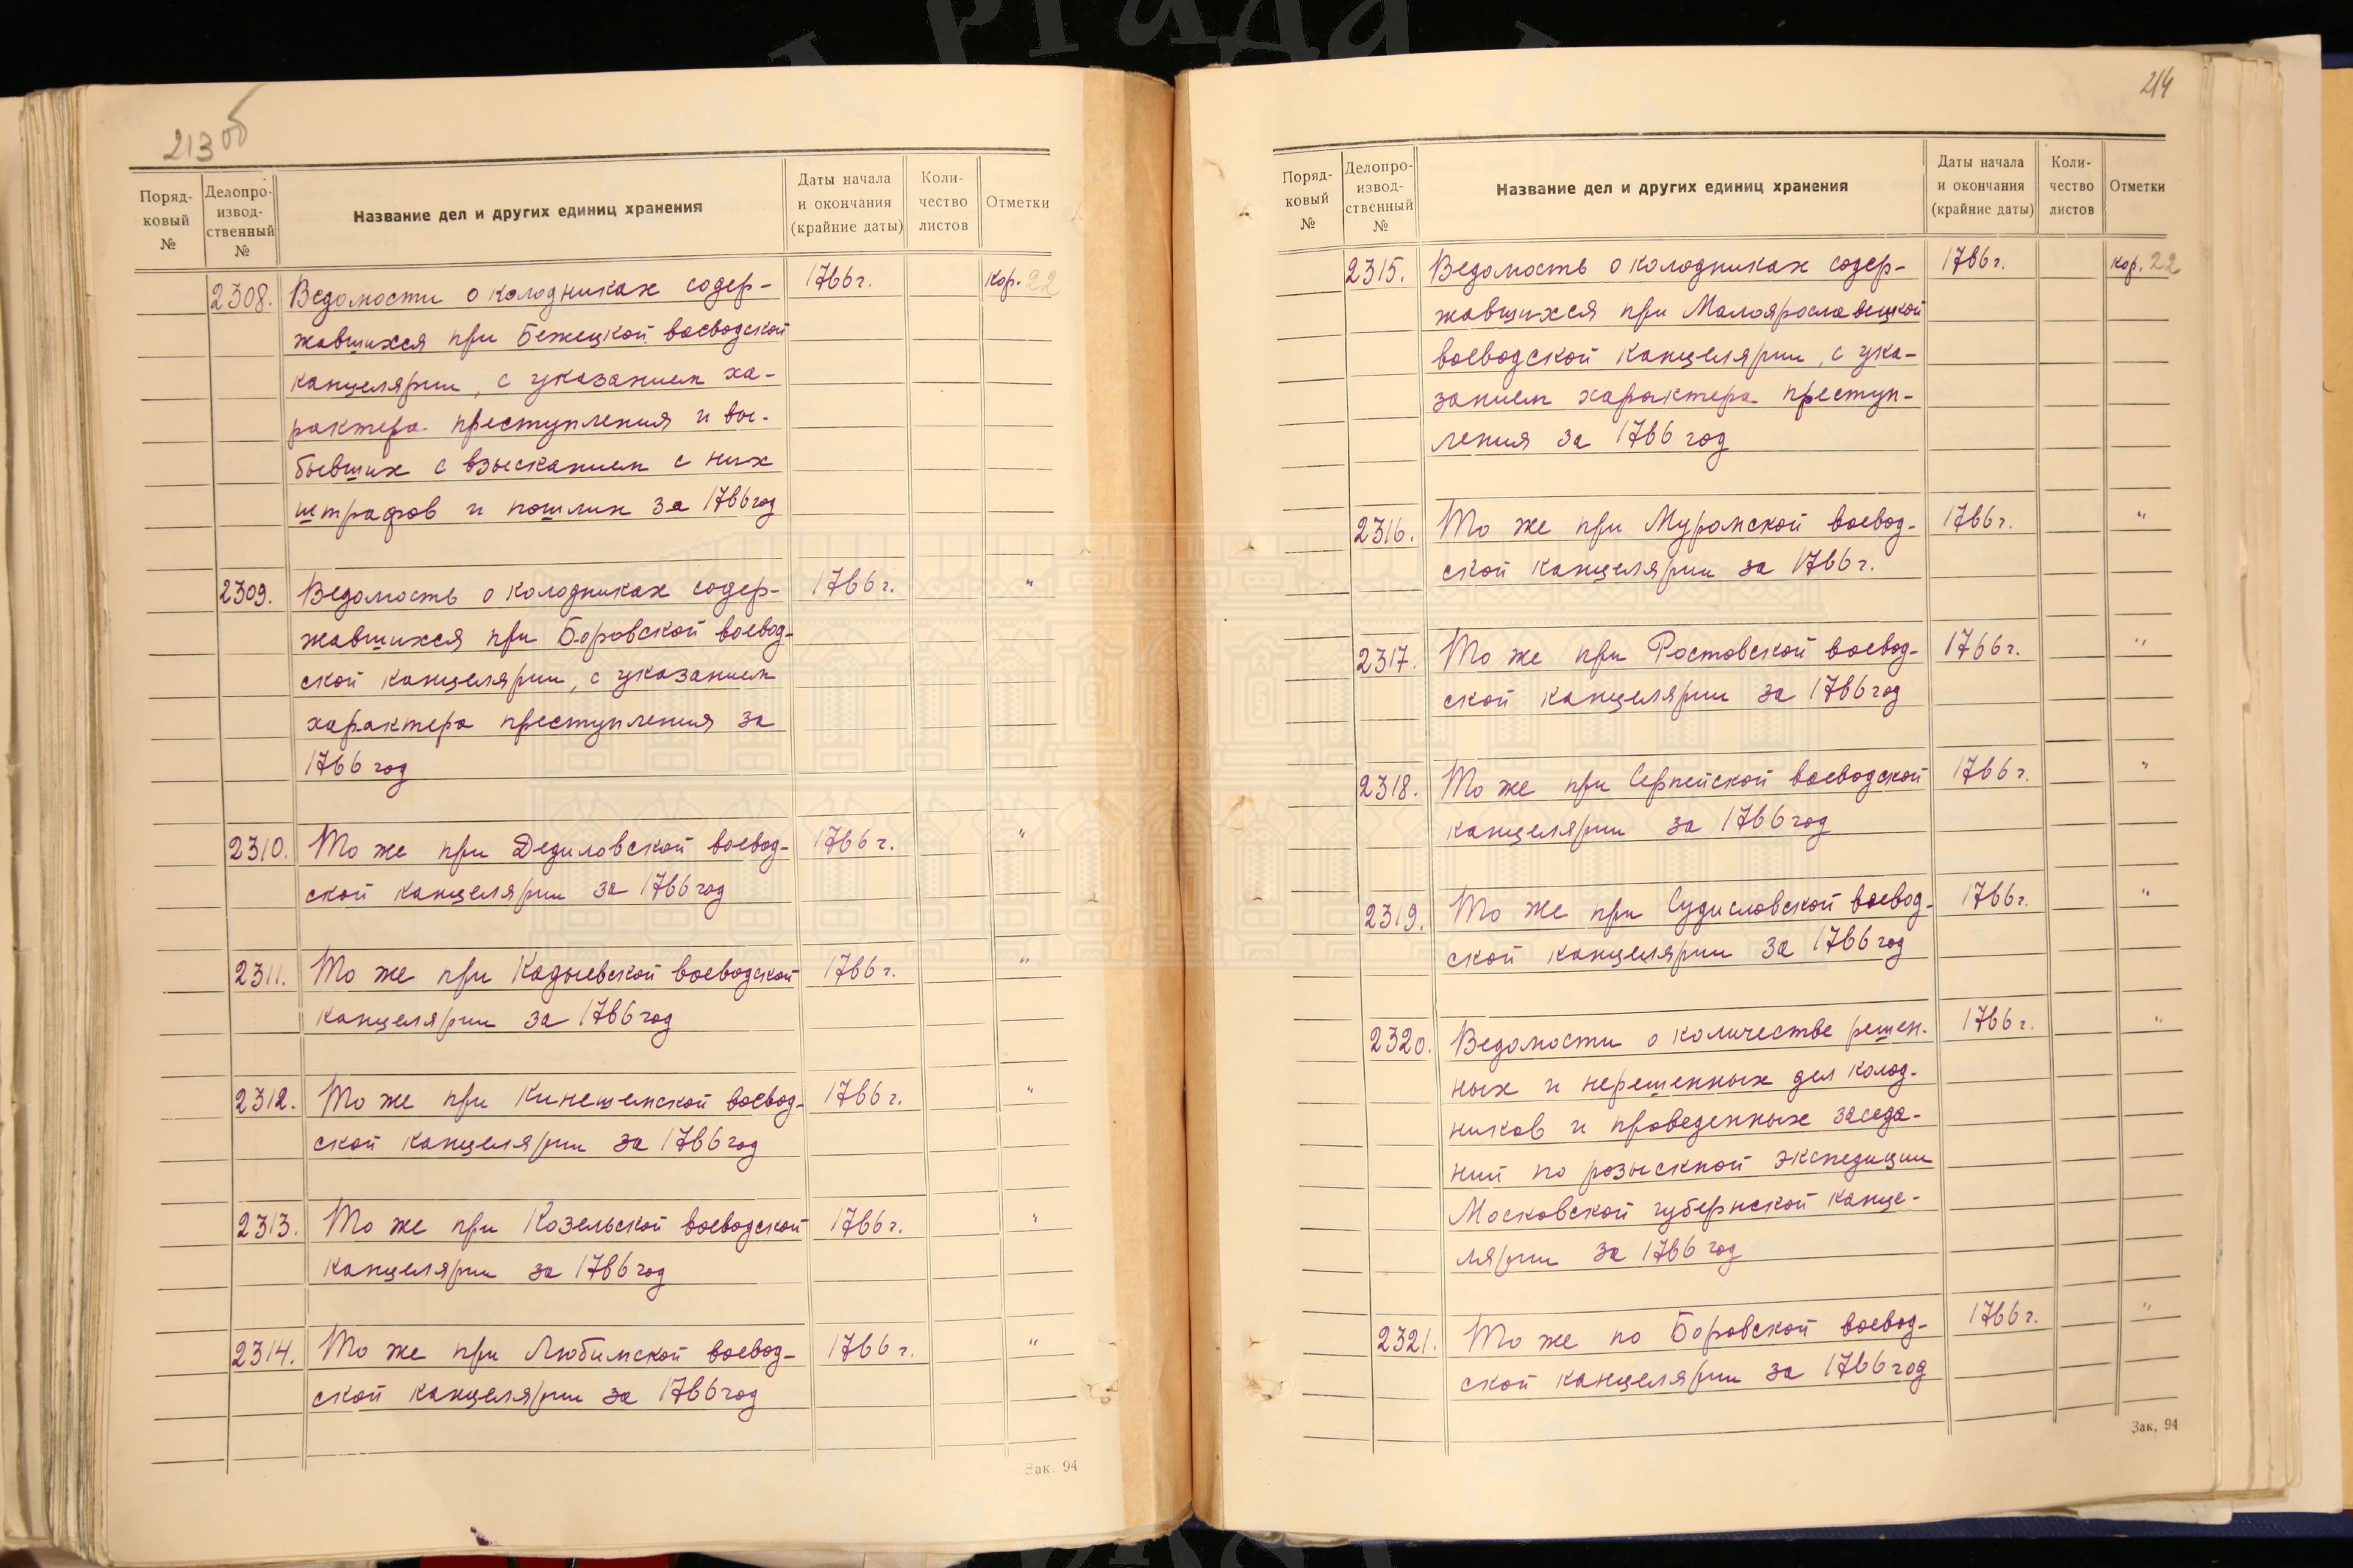 213 об
Поряд-
ковый
№
Делопро-
извод-
ственный
№
Название дел и других единиц хранения
Даты начала
и окончания
(крайние даты)
Коли-
чество
листов
Отметки
2308. Ведомости о колодниках содер- 1766 г. кор. 22
жавшихся при Бежецкой воеводской
канцелярии, с указанием ха-
рактера преступления и вы-
бывших с взысканием с них
штрафов и пошлин за 1766 год
2309. Ведомость о колодниках содер- 1766 г. "
жавшихся при Боровской воевод-
ской канцелярии, с указанием
характера преступления за
1766 год
2310. То же при Дедиловской воевод- 1766 г. "
ской канцелярии за 1766 год
2311. То же при Кадыевской воеводской 1766 г. "
канцелярии за 1766 год
2312. То же при Кинешемской воевод- 1766 г. "
ской канцелярии за 1766 год
2313. То же при Козельской воеводской 1766 г. "
канцелярии за 1766 год
2314. То же при Любимской воевод- 1766 г. "
ской канцелярии за 1766 год
Зак. 94
214
Поряд-
ковый
№
Делопро-
извод-
ственный
№
Название дел и других единиц хранения
Даты начала
и окончания
(крайние даты)
Коли-
чество
листов
Отметки
2315. Ведомость о колодниках содер- 1766 г. кор. 22
жавшихся при Малоярославецкой
воеводской канцелярии, с ука-
занием характера преступ-
ления за 1766 год
2316. То же при Муромской воевод- 1766 г. "
ской канцелярии за 1766 г.
2317. То же при Ростовской воевод- 1766 г. "
ской канцелярии за 1766 год
2318. То же при Серпейской воеводской 1766 г. "
канцелярии за 1766 год
2319. То же при Судисловской воевод- 1766 г. "
ской канцелярии за 1766 год
2320. Ведомости о количестве решен- 1766 г. "
ных и нерешенных дел колод-
ников и проведенных заседа-
ний по розыскной экспедиции
Московской губернской канце-
лярии за 1766 год
2321. То же по Боровской воевод- 1766 г. "
ской канцелярии за 1766 год
Зак. 94